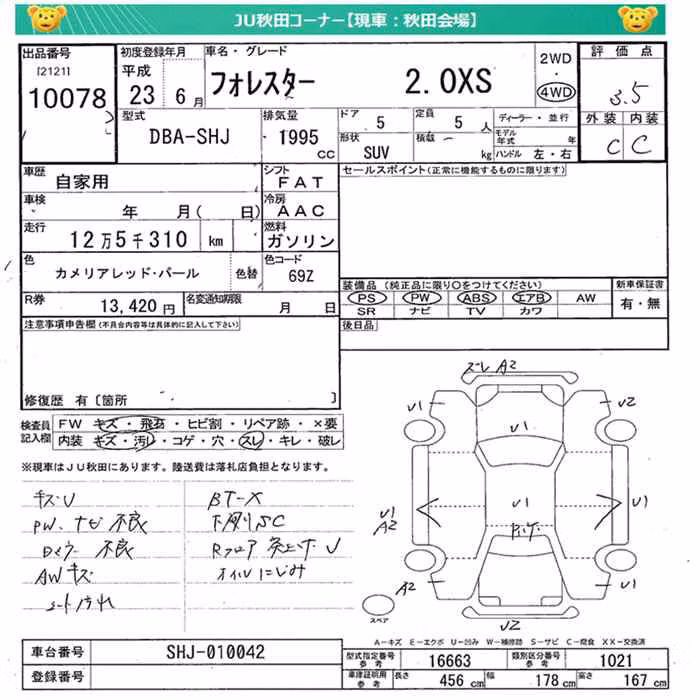 JU秋田コーナー【現車：秋田会場】
出品番号 初度登録年月 車名・グレード 2WD 評価点
[2121] 平成 フォレスター 2.0XS 4WD 3.5
10078 23 6月
型式 排気量 ドア 定員 ディーラー・並行 外装 内装
DBA-SHJ 1995 CC 5 5人 モデル年式 年 C C
形状 SUV 積載 － kg ハンドル 左・右
車歴 自家用 シフト FAT セールスポイント(正常に機能するものに限ります)
車検 年 月( 日) 冷房 AAC
走行 12万5千310 km 燃料 ガソリン
色 カメリアレッド・パール 色替 色コード 69Z
装備品(純正品に限り○をつけてください) 新車保証書
R券 13,420円 名変通知期限 月 日 PS PW ABS エアB AW 有・無
SR ナビ TV カワ
注意事項申告欄(不具合内容等は具体的に記入して下さい) 後日品
修復歴 有〔箇所 〕
検査員記入欄 FW キズ・飛石・ヒビ割・リペア跡・×要
内装 キズ・汚レ・コゲ・穴・スレ・キレ・破レ
※現車はJU秋田にあります。陸送費は落札店負担となります。
キズU BT-X
PW、ナビ 不良 下廻りSC
不良 Rフロア U
AWキズ オイルにじみ
シート汚れ
ズレ A2
U1 U2
U1
U1 U1 U1
A2
A2 U1
U2
スペア
A－キズ E－エクボ U－凹み W－補修跡 S－サビ C－腐食 XX－交換済
車台番号 SHJ-010042 型式指定番号 参考 16663 類別区分番号 参考 1021
登録番号 車庫証明用 参考 長さ 456 cm 幅 178 cm 高さ 167 cm